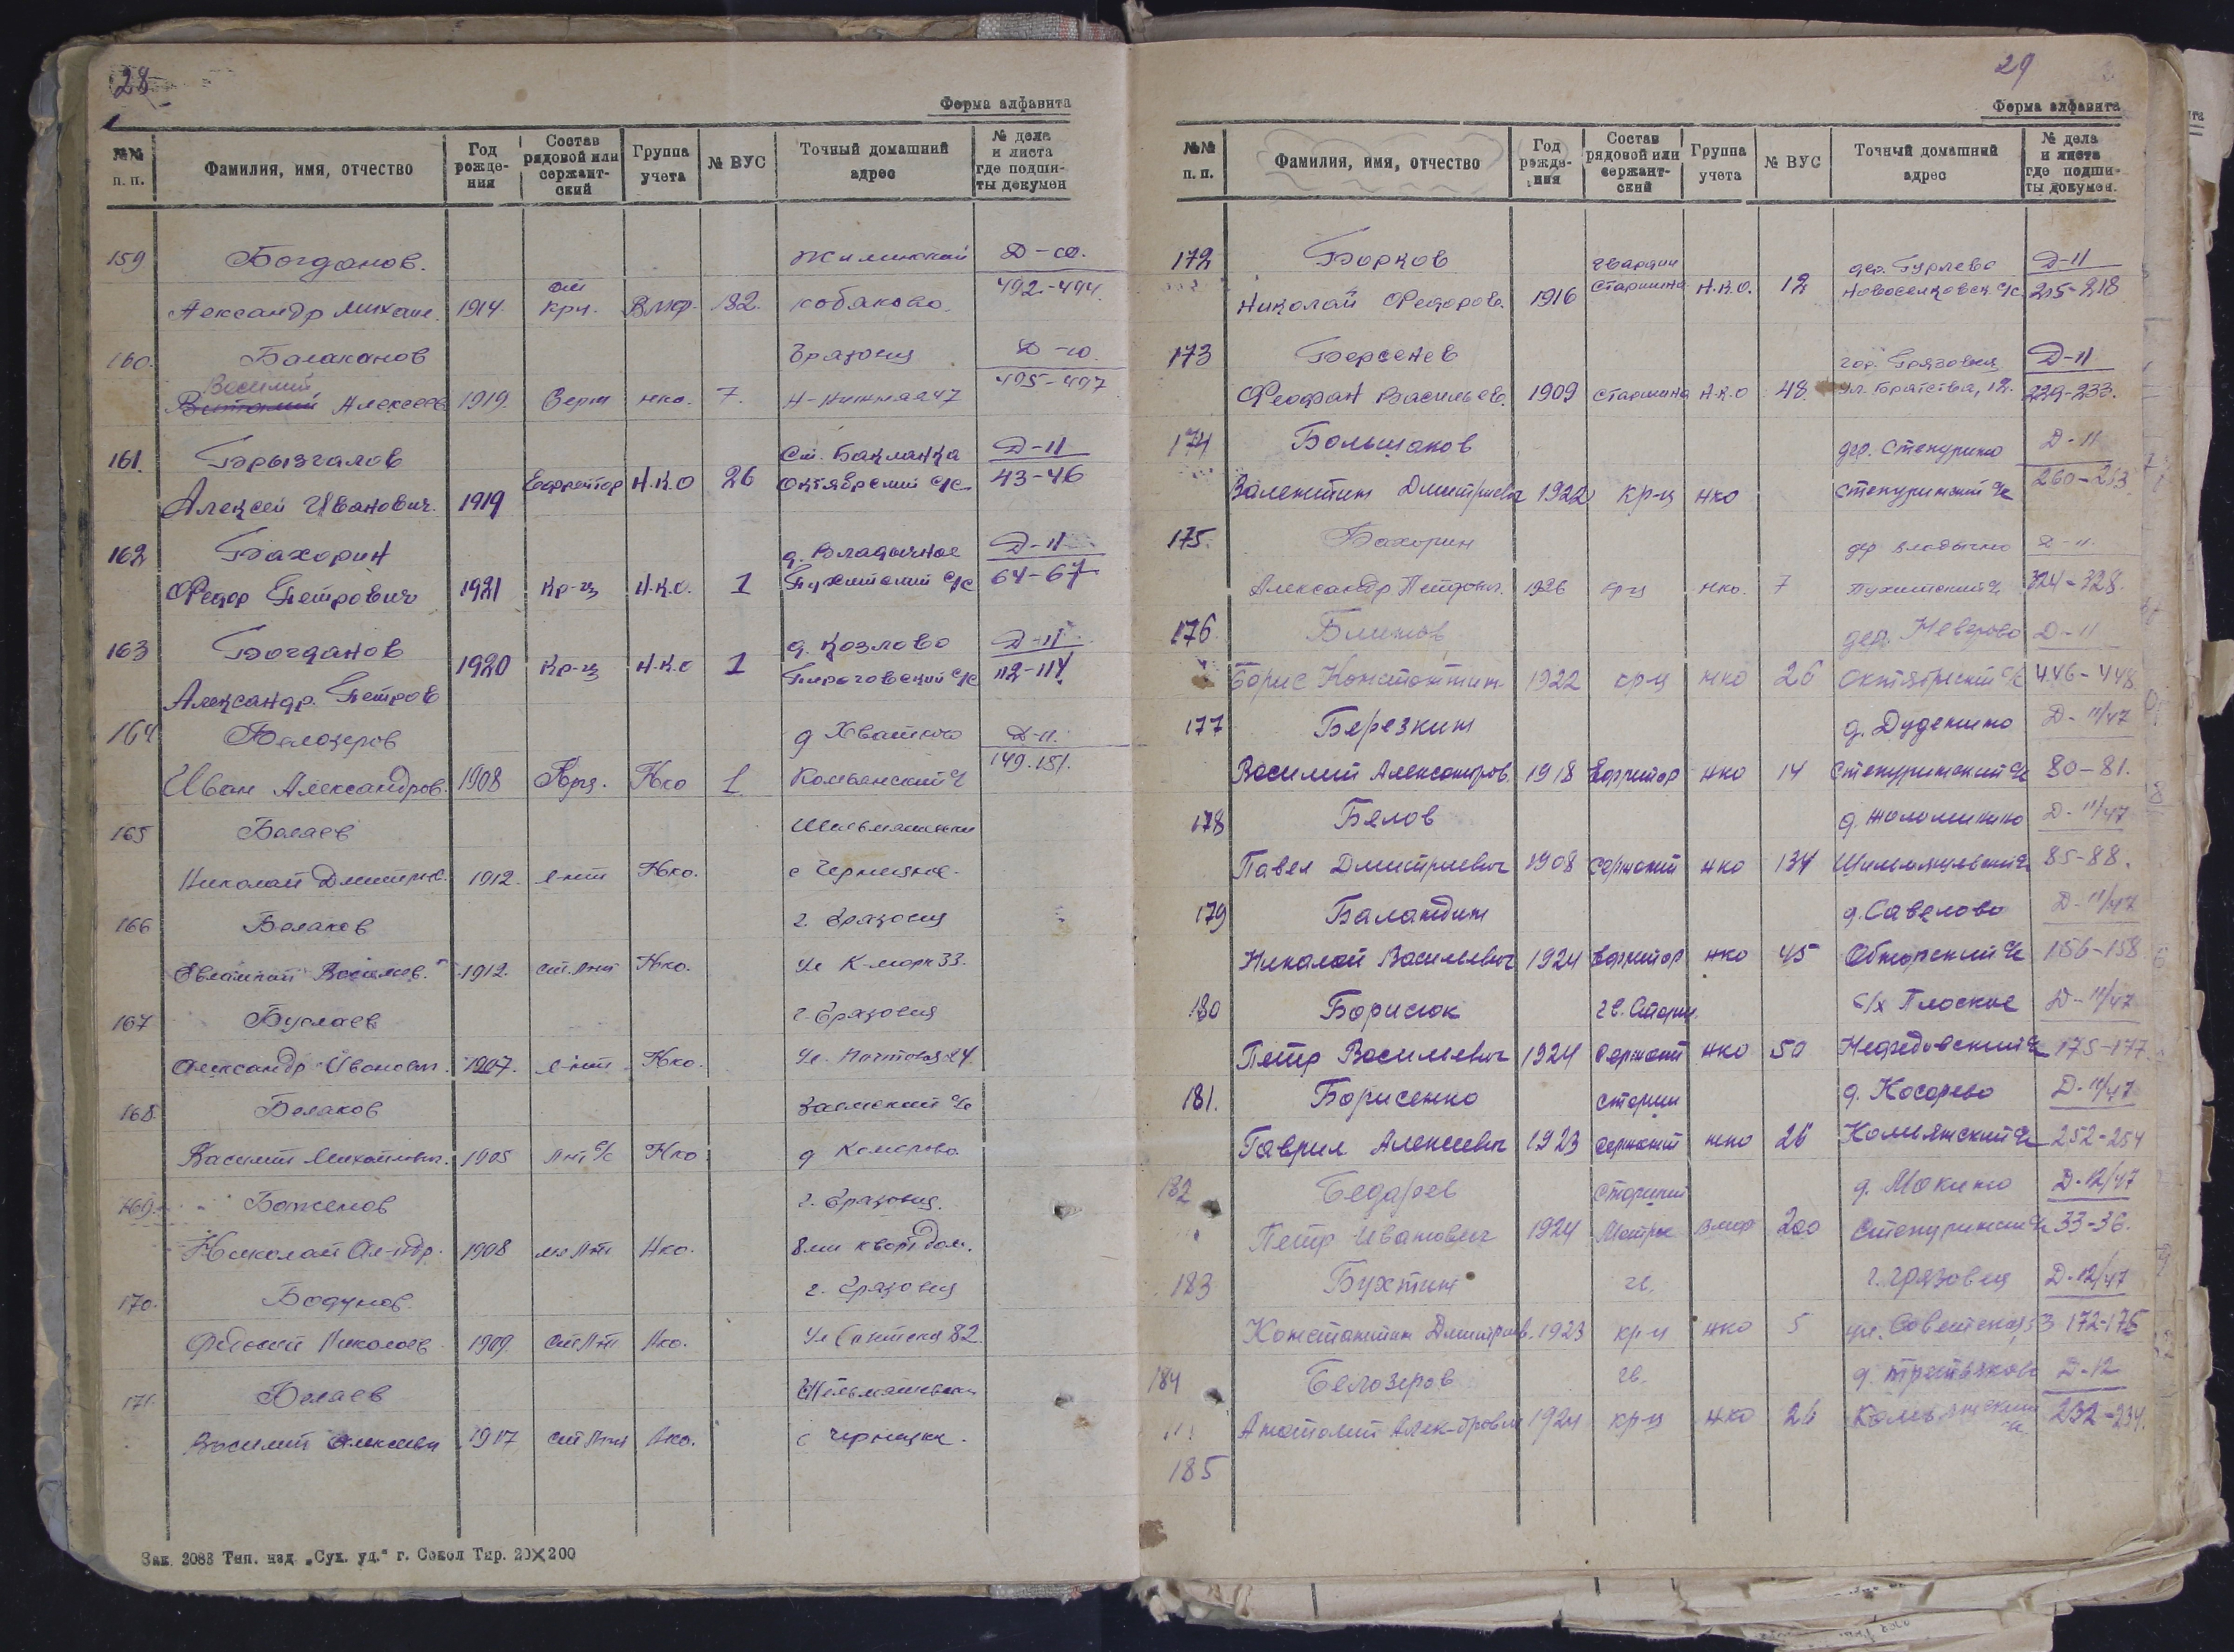 28
Форма алфавита
№№ п. п. Фамилия, имя, отчество Год рожде-ния Состав рядовой или сержант-ский Группа учета № ВУС Точный домашний адрес № дела и листа где подши-ты докумен
159 Богданов. Жилинский Д-10.
Александр Михаил. 1914 крц. ВМФ. 182. 492-494
160. Балаканов Грязовец Д-10.
Василий Алексеев 1919. Серж нко. 7. 495-497
161. Брызгалов ст. Бакланка Д-11
Алексей Иванович. 1919 Ефрейтор Н.К.О 26 Октябрский с/с 43-46
162 Бахорин д. Владычное Д-11
Федор Петрович 1921 Кр-ц Н.К.О. 1 с/с 64-67
163 Богданов д. Козлово Д-11
Александр. Петров 1920 Кр-ц Н.К.О 1 Пироговский с/с 112-114
164 Белозеров д Д-11.
Иван Александров. 1908 Крц. Нко 1 Комьянский 149-151.
165 Балаев
Николай Дмитрев. 1912. л-нт Нко. с Чернецкое
166 Белаков г. Грязовец
Василев. 1912. ст. л-нт Нко. Ул К-Марк 33.
167 Буслаев г. Грязовец
Александр Иванович. 1907. л-нт Нко. Ул. Почтовая 24.
168. Белаков с/с
Василий Михайлович. 1905 Нко д
169. Баженов г. Грязовец.
Николай Ал-ндр. 1908 Нко.
170. Бодунов г. Грязовец
Николаев 1909. Нко. Ул 82.
171. Белаев
Василий Алексеевич 1917 Нко. с
Зак. 2088 Тип. изд. „Сух. уд." г. Сокол Тир. 20×200
29
Форма алфавита
№№ п. п. Фамилия, имя, отчество Год рожде-ния Состав рядовой или сержант-ский Группа учета № ВУС Точный домашний адрес № дела и листа где подши-ты докумен.
172 Борков гвардии дер. Гурлево Д-11
Николай Федоров. 1916 старшина Н.К.О. 12 Новоселковск. с/с. 215-218
173 Берсенев гор. Грязовец Д-11
Феофан Васильев. 1909 старшина Н.К.О 48. ул. Братства, 12. 229-233.
174 Большаков дер. Степурино Д-11
Валентин Дмитриевич 1922 кр-ц нко Степуринский с/с 260-263
175. Бахорин дер Владычно Д-11.
Александр Петрович. 1926 кр-ц нко. 7 324-328.
176 Блинов дер. Неверово Д-11
Борис Константин. 1922 кр-ц нко 26 Октябрский с/с 446-448
177 Березкин д. Дуденино Д-11/47
Василий Александров. 1918 Ефрейтор нко 14 Степуринский с/с 80-81.
178 Белов д. Д-11/47
Павел Дмитриевич 1908 Сержант нко 134 с/с 85-88.
179 Баландин д. Савелово Д-11/47
Николай Васильевич 1924 Ефрейтор нко 45 Обнорский с/с 156-158
180 Борисюк гв. Старш. с/х Плоское Д-11/47
Петр Васильевич 1924 Сержант нко 50 с/с 175-177
181. Борисенко старши д. Косарево Д-11/47
Гаврил Алексеевич 1923 сержант нко 26 Комьянский с/с 252-254
182 Бедарев Старший д. Мокино Д-12/47
Петр Иванович 1924 Матрос ВМФ 200 Степурински с/с 33-36.
183 Бухтин гв. г. Грязовец Д-12/47
Константин Дмитриев. 1923 кр-ц нко 5 ул. Советская, 53 172-175
184 Белозеров гв. д. Третьяково Д-12
Анатолий Алек-дрович 1924 кр-ц нко 26 Комьянский с/с. 232-234.
185